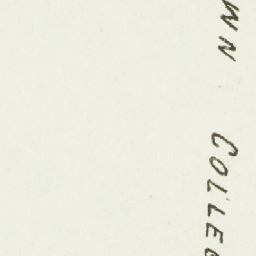 WN COLLEC